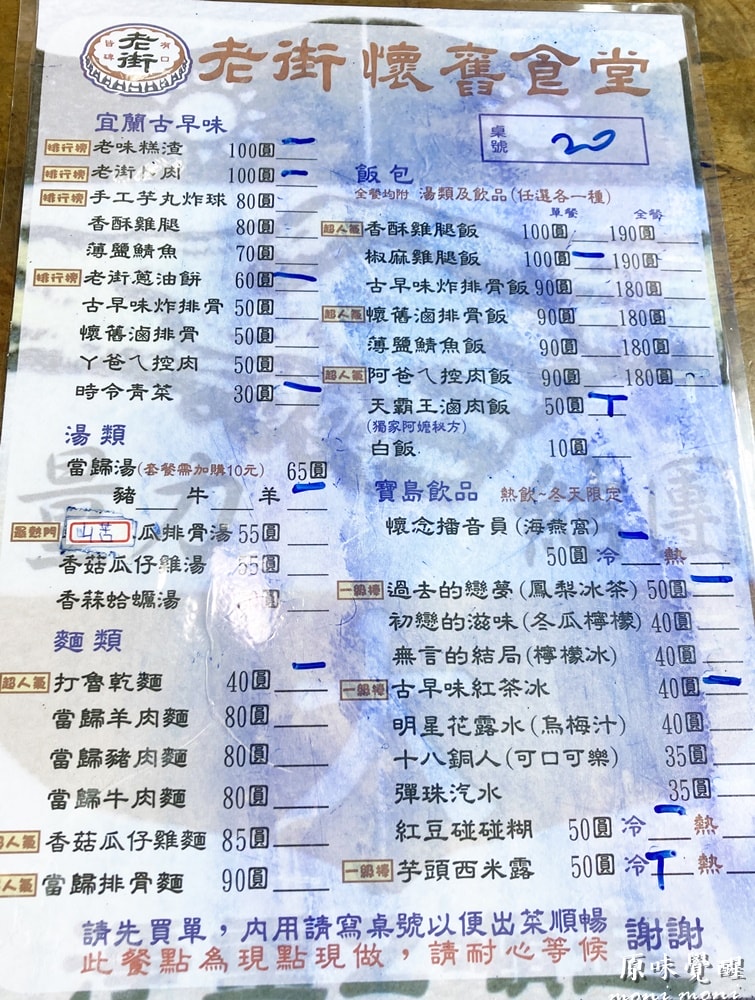 有口
老街
皆碑
老街懷舊食堂
桌號 20
宜蘭古早味
排行榜 老味糕渣 100圓
排行榜 老街卜肉 100圓
排行榜 手工芋丸炸球 80圓
香酥雞腿 80圓
薄鹽鯖魚 70圓
排行榜 老街蔥油餅 60圓
古早味炸排骨 50圓
懷舊滷排骨 50圓
ㄚ爸ㄟ控肉 50圓
時令青菜 30圓
湯類
當歸湯(套餐需加購10元) 65圓
豬 牛 羊
最熱門 山苦瓜排骨湯 55圓
香菇瓜仔雞湯 55圓
香菻蛤蠣湯 圓
麵類
超人氣 打魯乾麵 40圓
當歸羊肉麵 80圓
當歸豬肉麵 80圓
當歸牛肉麵 80圓
超人氣 香菇瓜仔雞麵 85圓
人氣 當歸排骨麵 90圓
飯包
全餐均附 湯類及飲品(任選各一種)
單餐 全餐
超人氣 香酥雞腿飯 100圓 190圓
椒麻雞腿飯 100圓 190圓
古早味炸排骨飯 90圓 180圓
超人氣 懷舊滷排骨飯 90圓 180圓
薄鹽鯖魚飯 90圓 180圓
超人氣 阿爸ㄟ控肉飯 90圓 180圓
天霸王滷肉飯 50圓
(獨家阿嬤秘方)
白飯 10圓
寶島飲品 熱飲~冬天限定
懷念播音員(海燕窩)
50圓 冷 熱
一級棒 過去的戀夢(鳳梨冰茶) 50圓
初戀的滋味(冬瓜檸檬) 40圓
無言的結局(檸檬冰) 40圓
一級棒 古早味紅茶冰 40圓
明星花露水(烏梅汁) 40圓
十八銅人(可口可樂) 35圓
彈珠汽水 35圓
紅豆碰碰糊 50圓 冷 熱
一級棒 芋頭西米露 50圓 冷 熱
請先買單，內用請寫桌號以便出菜順暢
此餐點為現點現做，請耐心等候
謝謝
原味覺醒
moni moni